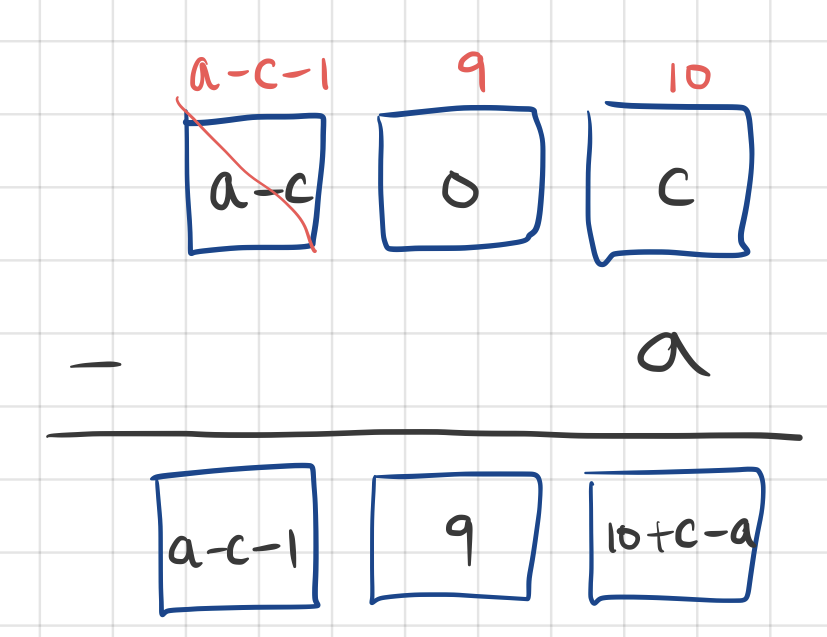 a-c-1 9 10
a-c 0 c
- a
a-c-1 9 10+c-a